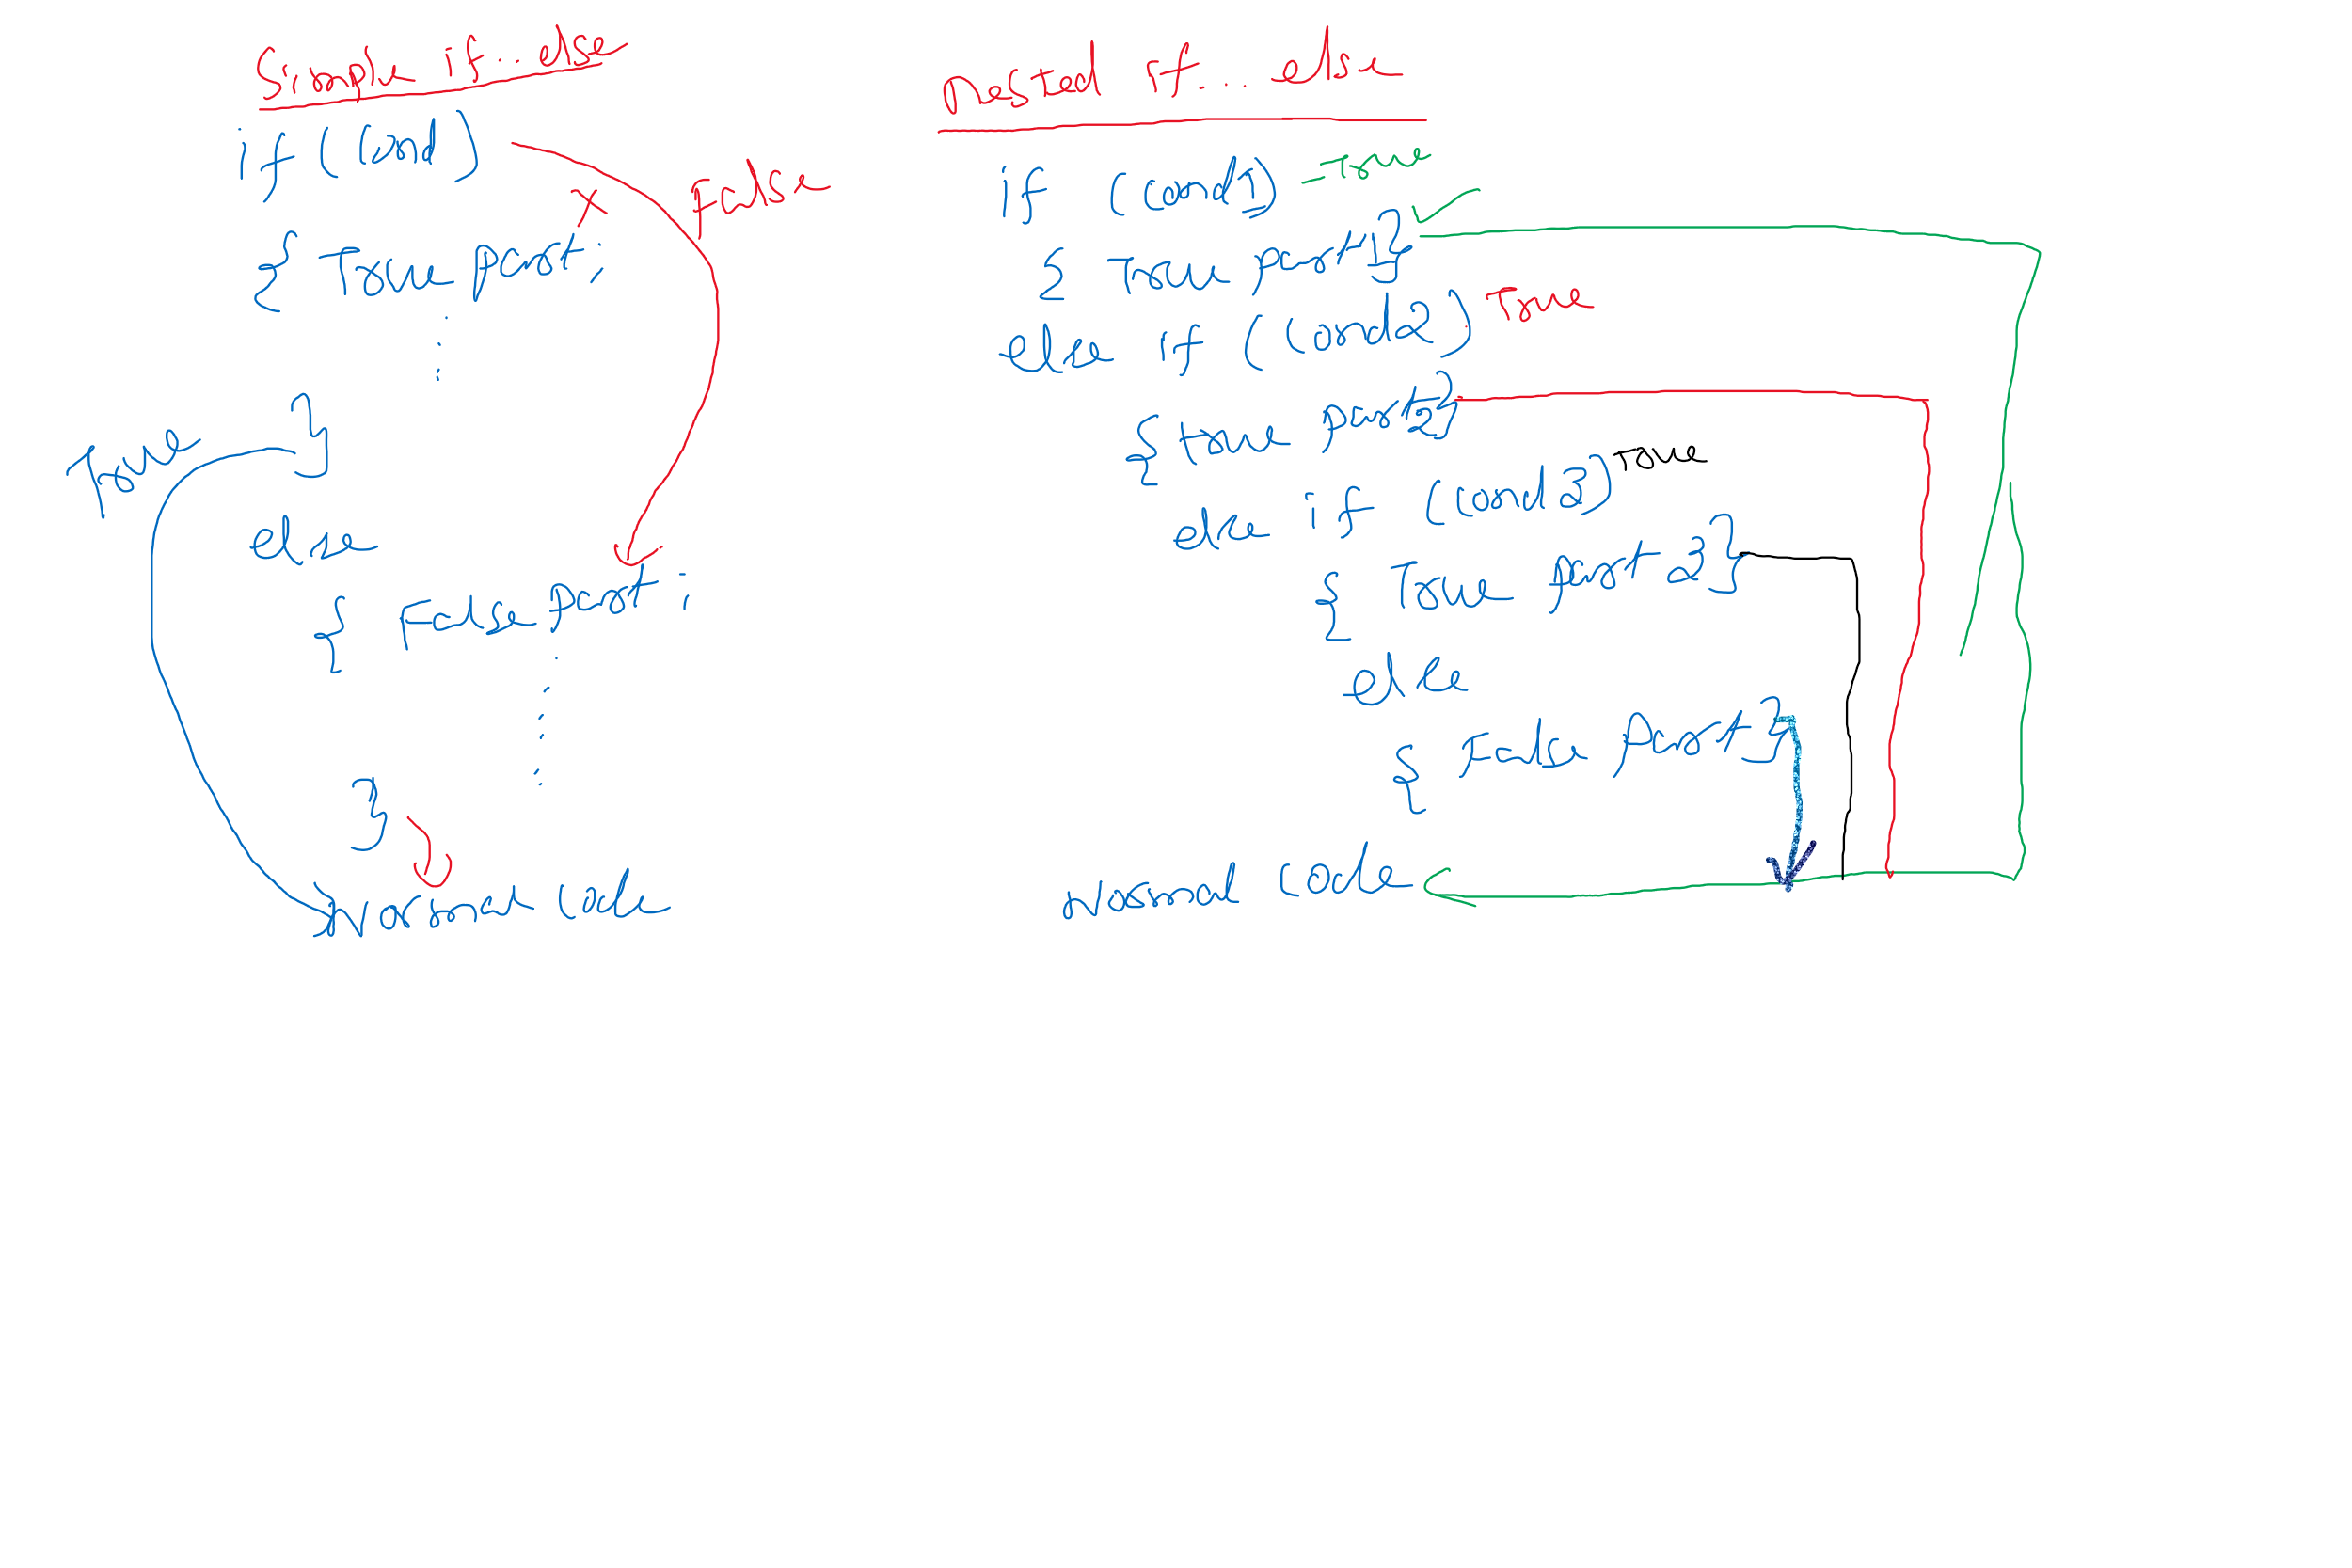 Simple if...else
if (Cond)
False
{ True part;
}
True
else
{ False part;
}
Normal Code
nested If... else
if (Cond1) - True
{ True part1}
else if (Cond2) True
{ true part2}
else if (Cond3) True
{ True part 3}
else
{ False part}
Normal Code